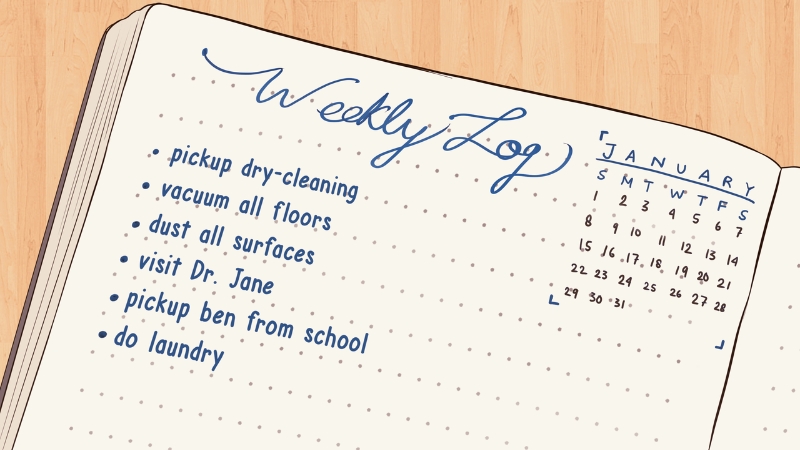 Weekly Log
• pickup dry-cleaning
• vacuum all floors
• dust all surfaces
• visit Dr. Jane
• pickup ben from school
• do laundry
JANUARY
S M T W T F S
1 2 3 4 5 6 7
8 9 10 11 12 13 14
15 16 17 18 19 20 21
22 23 24 25 26 27 28
29 30 31